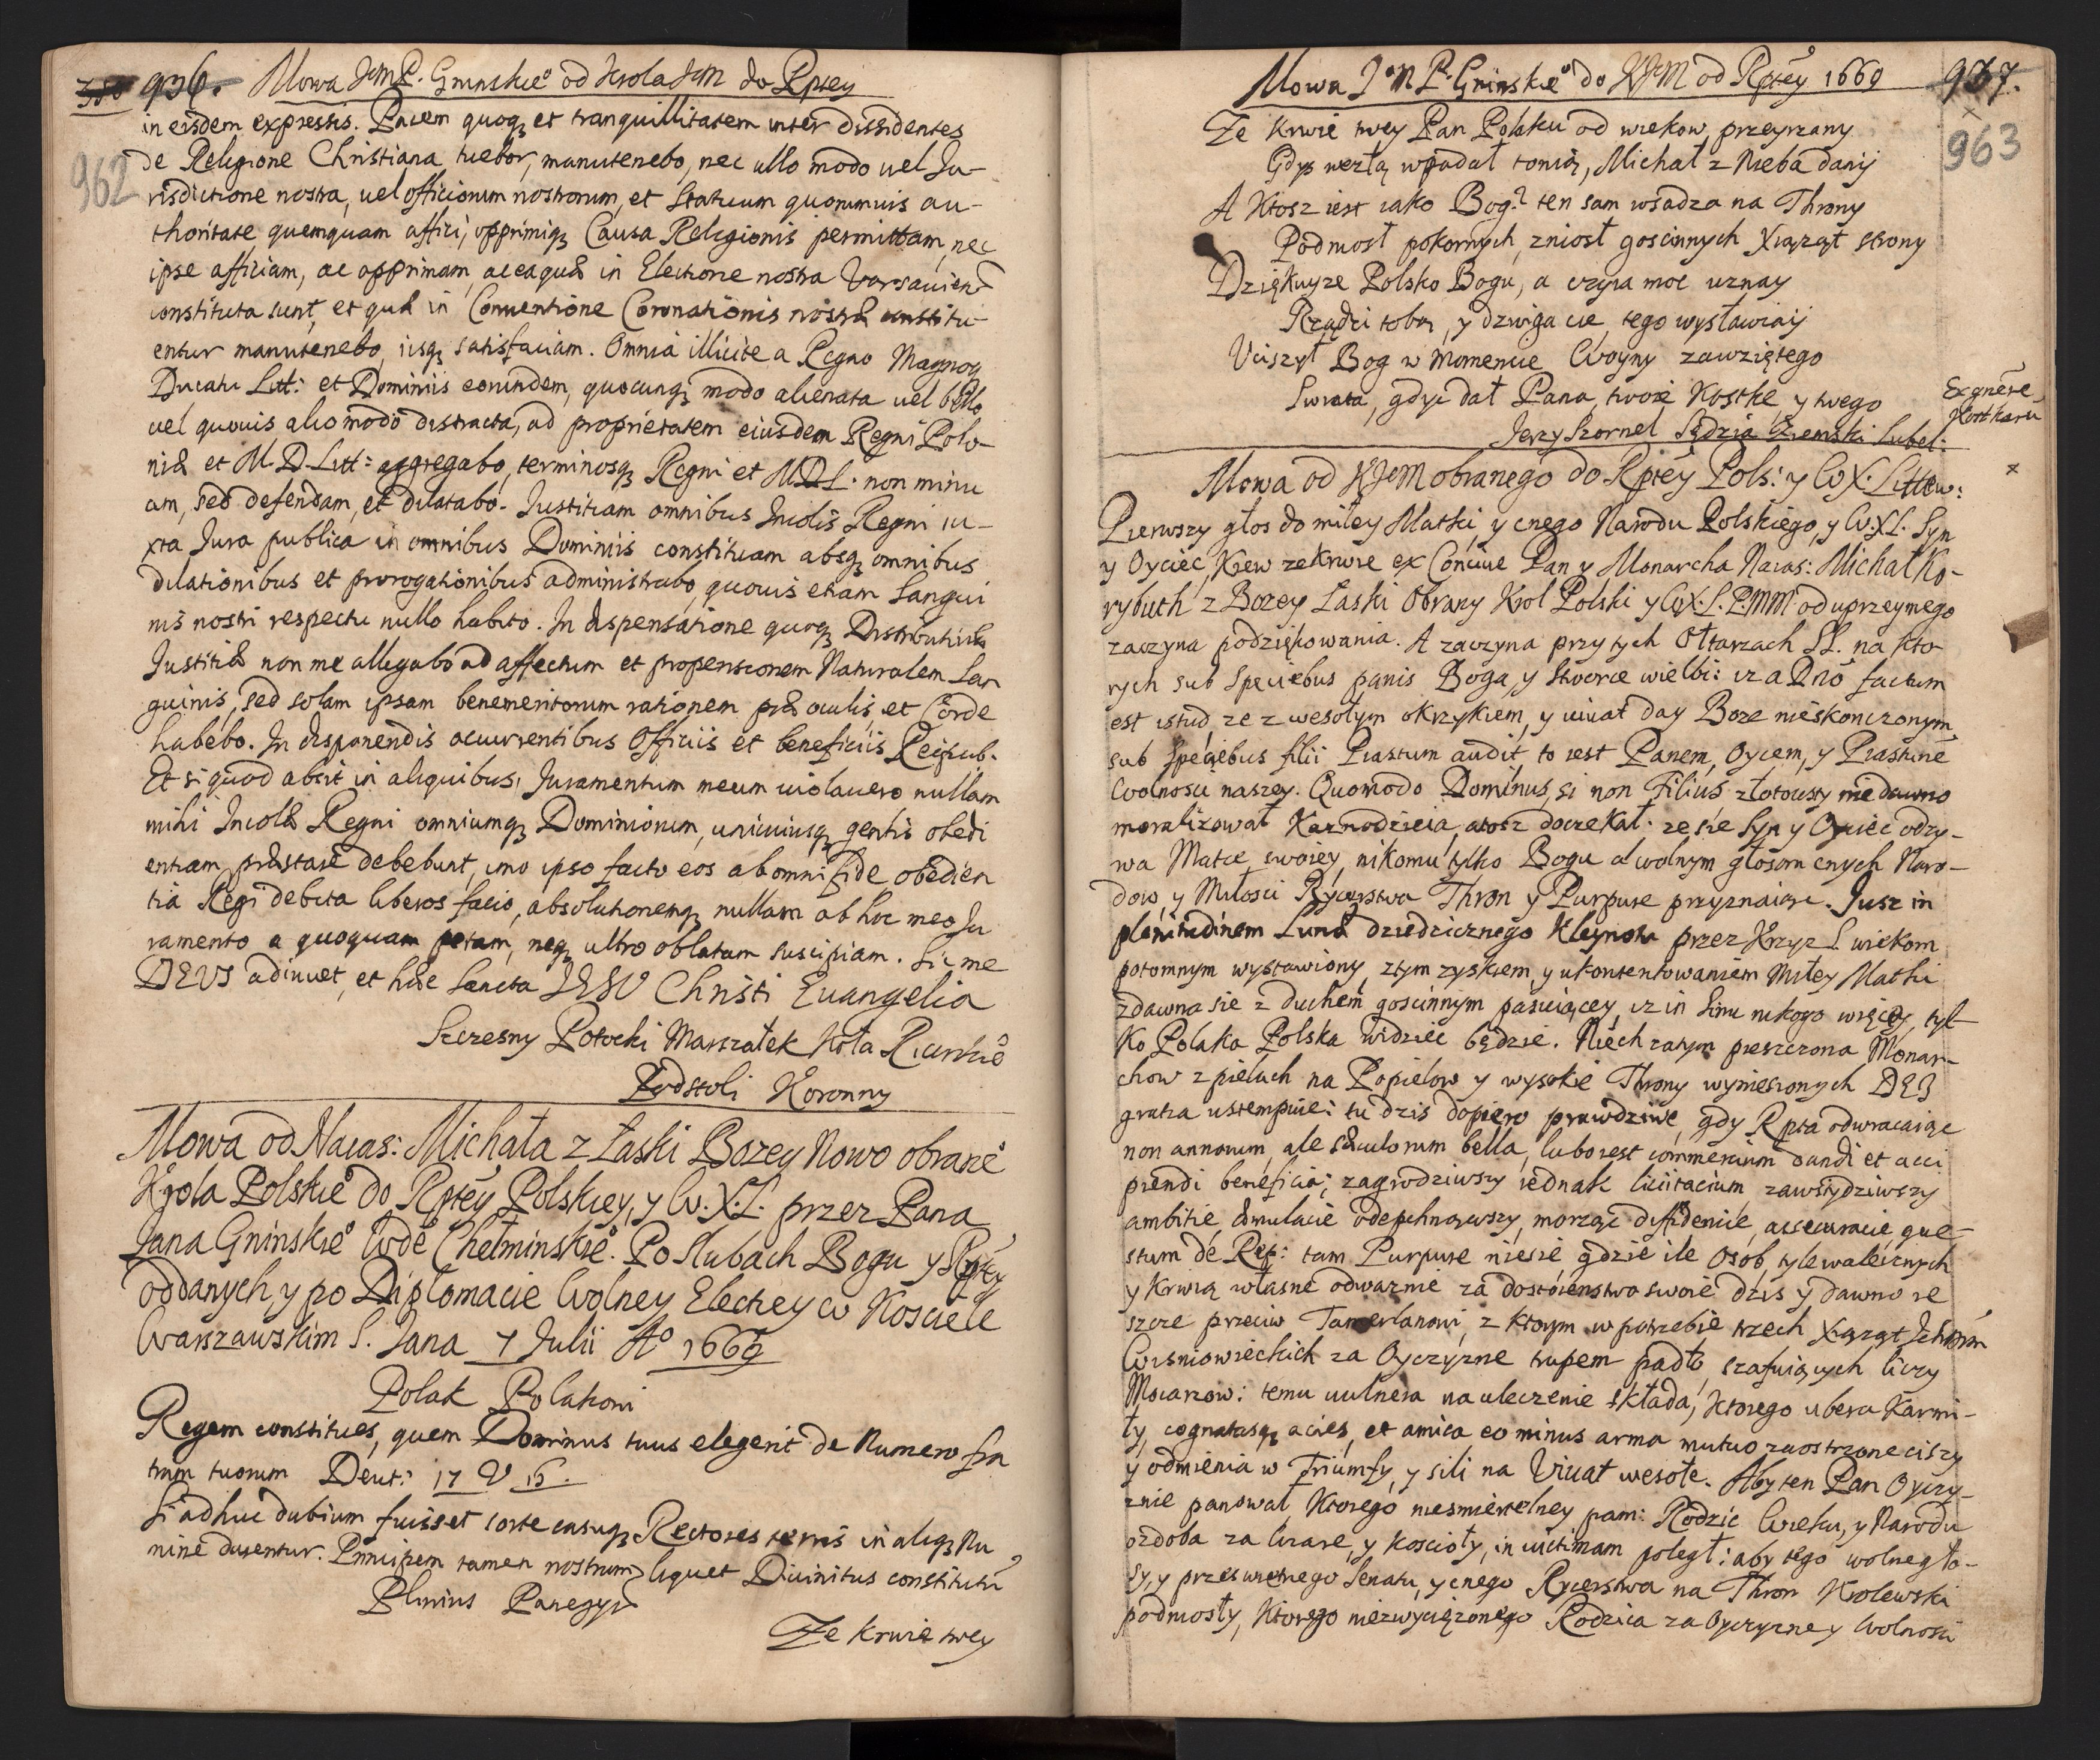 380 936. Mowa JemP. Gninskie° od Krola JeM do Rptey
962
in eisdem expressis. Pacem quoq; et tranquillitatem inter dissidentes
de Religione Christiana tuebor, manutenebo, nec ullo modo uel Ju-
risdictione nostra, uel officiorum nostrorum, et Statuum quorumuis au-
thoritate quemquam affici, opprimiq; Causa Religionis permittam, nec
ipse afficiam, ac opprimam, ac eaquæ in Electione nostra Varsauien
constituta sunt, et quæ in Conuentione Coronationis nostræ constitu-
entur manutenebo, iisq; satisfaciam. Omnia illicite a Regno Magnoq
Ducatu Litt: et Dominiis eorundem, quocunq; modo alienata uel bello
uel quouis alio modo distracta, ad proprietatem eiusdem Regni Polo-
niæ et M.D.Litt: aggregabo, terminosq; Regni et MDL. non minu
am, sed defendam, et dilatabo. Justitiam omnibus Incolis Regni iu-
xta Jura publica in omnibus Dominiis constitutam absq; omnibus
dilationibus et prorogationibus administrabo, quouis etiam Sangui
nis nostri respectu nullo habito. In dispensatione quoq; Distributiuæ
Justitiæ non me alligabo ad affectum et propensionem Naturalem San
guinis, sed solam ipsam benemeritorum rationem præ oculis, et Corde
habebo. In disponendis occurrentibus Officiis et beneficiis Reipub.
Et si quod absit in aliquibus, Juramentum meum uiolauero nullam
mihi Incolæ Regni omniumq; Dominiorum, uniuiusq; gentis obedi
entiam, præstare debebunt, imo ipso facto eos ab omni fide obedien
tia Regi debita liberos facio, absolutionemq; nullam ab hoc meo Ju
ramento a quoquam petam, neq; ultro oblatam suscipiam. Sic me
DEUS adiuuet, et hæc Sancta IESU Christi Euangelia
Szczesny Potocki Marszałek Koła Ricerskie°
Podstoli Koronny
Mowa od Naias: Michała z Łaski Bozey Nowo obrane°
Krola Polskie° do Rptey Polskiey, y W.X.L. przez Pana
Jana Gninskie° Wdę Chełminskie°. Po slubach Bogu y Rptey
oddanych y po Diplomacie Wolney Elekcyey w Kosciele
Warszawskim S. Jana 7 Julii A° 1669
Polak Polakowi
Regem constitues, quem Dominus tuus elegerit de Numero fra
trum tuorum Deut: 17 V 15.
Si adhuc dubium fuisset sorte casuq; Rectores terris in aliq; Nu
mine darentur. Principem tamen nostrum liquet Diuinitus constitutu
Plinius Panegyr
Ze krwie twey
Mowa J°M P. Gninskie° do KJeM od Rptey 1669 937.
963
Ze krwie twey Pan Polaku od wiekow przeyrzany
Gdys w złą wpadał tonią, Michał z Nieba dany
A Ktosz iest iako Bog? ten sam wsadza na Throny
Podniosł pokornych, zniosł goscinnych Xiąząt strony
Dziękuyze Polsko Bogu, a czyia moc uznay
Rządzi tobą, y dzwiga cie, tego wysławiay
Uciszył Bog w momencie Woyny zawziętego
Swiata, gdyc dał Pana, twoię Kostkę y twego
Ex gnere
Jerzy Szornel Sędzia Ziemski Lubel:
Mowa od KJeM obranego do Rptey Pols: y W.X. Littew:
Pierwszy głos do miłey Matki, y cnego Narodu Polskiego, y W.X.L. Syn
y Oyciec, Krew ze krwie ex Conciue Pan y Monarcha Naias: Michał Ko-
rybuth z Bozey Łaski Obrany Krol Polski y W.X.L. P.MM od uprzeymego
zaczyna podziękowania. A zaczyna przy tych Ołtarzach SS. na kto-
rych sub speciebus panis Boga, y Stworce wielbi: iz a Dno factum
est istud, ze z wesołym okrzykiem, y uiuat day Boze nieskonczonym
sub speciebus filii Piastum audit, to iest Panem, Oycem, y Piastune
Wolnosci naszey. Quomodo Dominus, si non Filius złotousty niedawno
moralizował Kaznodzieia, atosz doczekał: ze sie Syn y Oyciec odzy-
wa Matce swoiey, nikomu tylko Bogu a wolnym głosom cnych Naro-
dow, y Miłosci Rycerstwa Thron y Purpurę przyznaiąc. Jusz in
plenitudinem Lunæ dziedzicznego Kleynotu przez Krzyz S wiekom
potomnym wystawiony, ztym zyskiem, y ukontentowaniem Miłey Matki
zdawna sie z duchem goscinnym pasuiącey, iz in Sinu nikogo więcey, tyl-
ko Polaka Polska widziec będzie. Niech zatym pieszczona Monar-
chow z pieluch na Popielow y wysokie Throny wyniesionych DEI
gratia ustempuie: tu dzis dopiero prawdziwe, gdy Rpta odwracaiąc
non annorum, ale sæculorum bella, lubo iest commercium dandi et acci
piendi beneficia; zagrodziwszy iednak licitacium zawstydziwszy
ambitie, æmulacie odepchnąwszy, morząc diffidencie, assecuracie que-
stum de Rep: tam Purpurę niesie, gdzie ile osob, tyle walecznych
y krwią własne odwaznie za dostoienstwo swoie dzis y dawno ie
szcze przeciw Tamerlanowi, z ktorym w potrzebie trzech Xiąząt
Wisniowieckich za Oyczyznę trupem padło, szafuiących liczy
Mocarzow: temu uulnera na uleczenie składa, ktorego ubera karmi-
ły, cognatasq; acies, et amica co minus arma mutuo zaostrzone ciszy
y odmienia w Triumfy, y sili na Viuat wesołe. Aby ten Pan Oyczy-
znie panował, ktorego niesmiertelney pam: Rodzic Wieku, y Narodu
ozdoba za Wiarę, y Koscioły, in uictimam poległ: aby tego wolne gło-
sy, y przeswietnego Senatu, y cnego Rycerstwa na Thron Krolewski
podniosły, ktorego niezwyciezonego Rodzica za Oyczyznę y Wolnosci